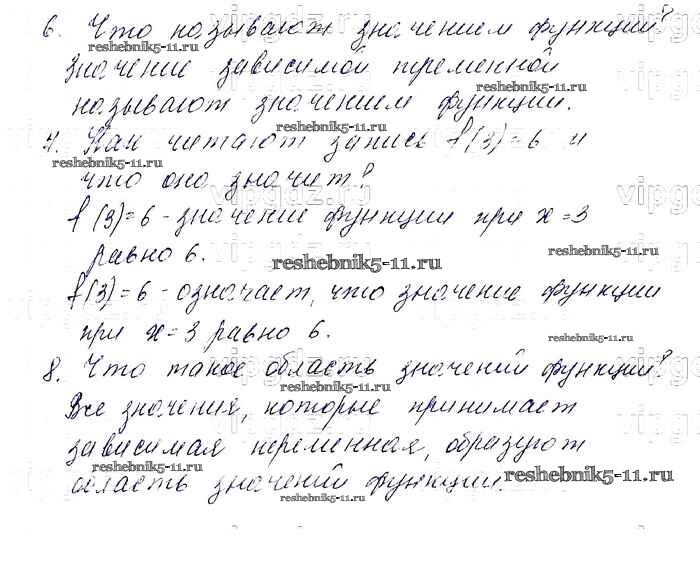 6. Что называют значением функции?
reshebnik5-11.ru
значение зависимой переменной
reshebnik5-11.ru
называют значением функции.
reshebnik5-11.ru
7. Как читают запись f(3)=6 и
reshebnik5-11.ru
что она значит?
vipgdz.ru
f(3)=6 - значение функции при x=3
reshebnik5-11.ru
равно 6.
reshebnik5-11.ru
f(3)=6 - означает, что значение функции
при x=3 равно 6.
reshebnik5-11.ru
8. Что такое область значений функции?
reshebnik5-11.ru
Все значения, которые принимает
зависимая переменная, образуют
reshebnik5-11.ru
reshebnik5-11.ru
область значений функции.
reshebnik5-11.ru